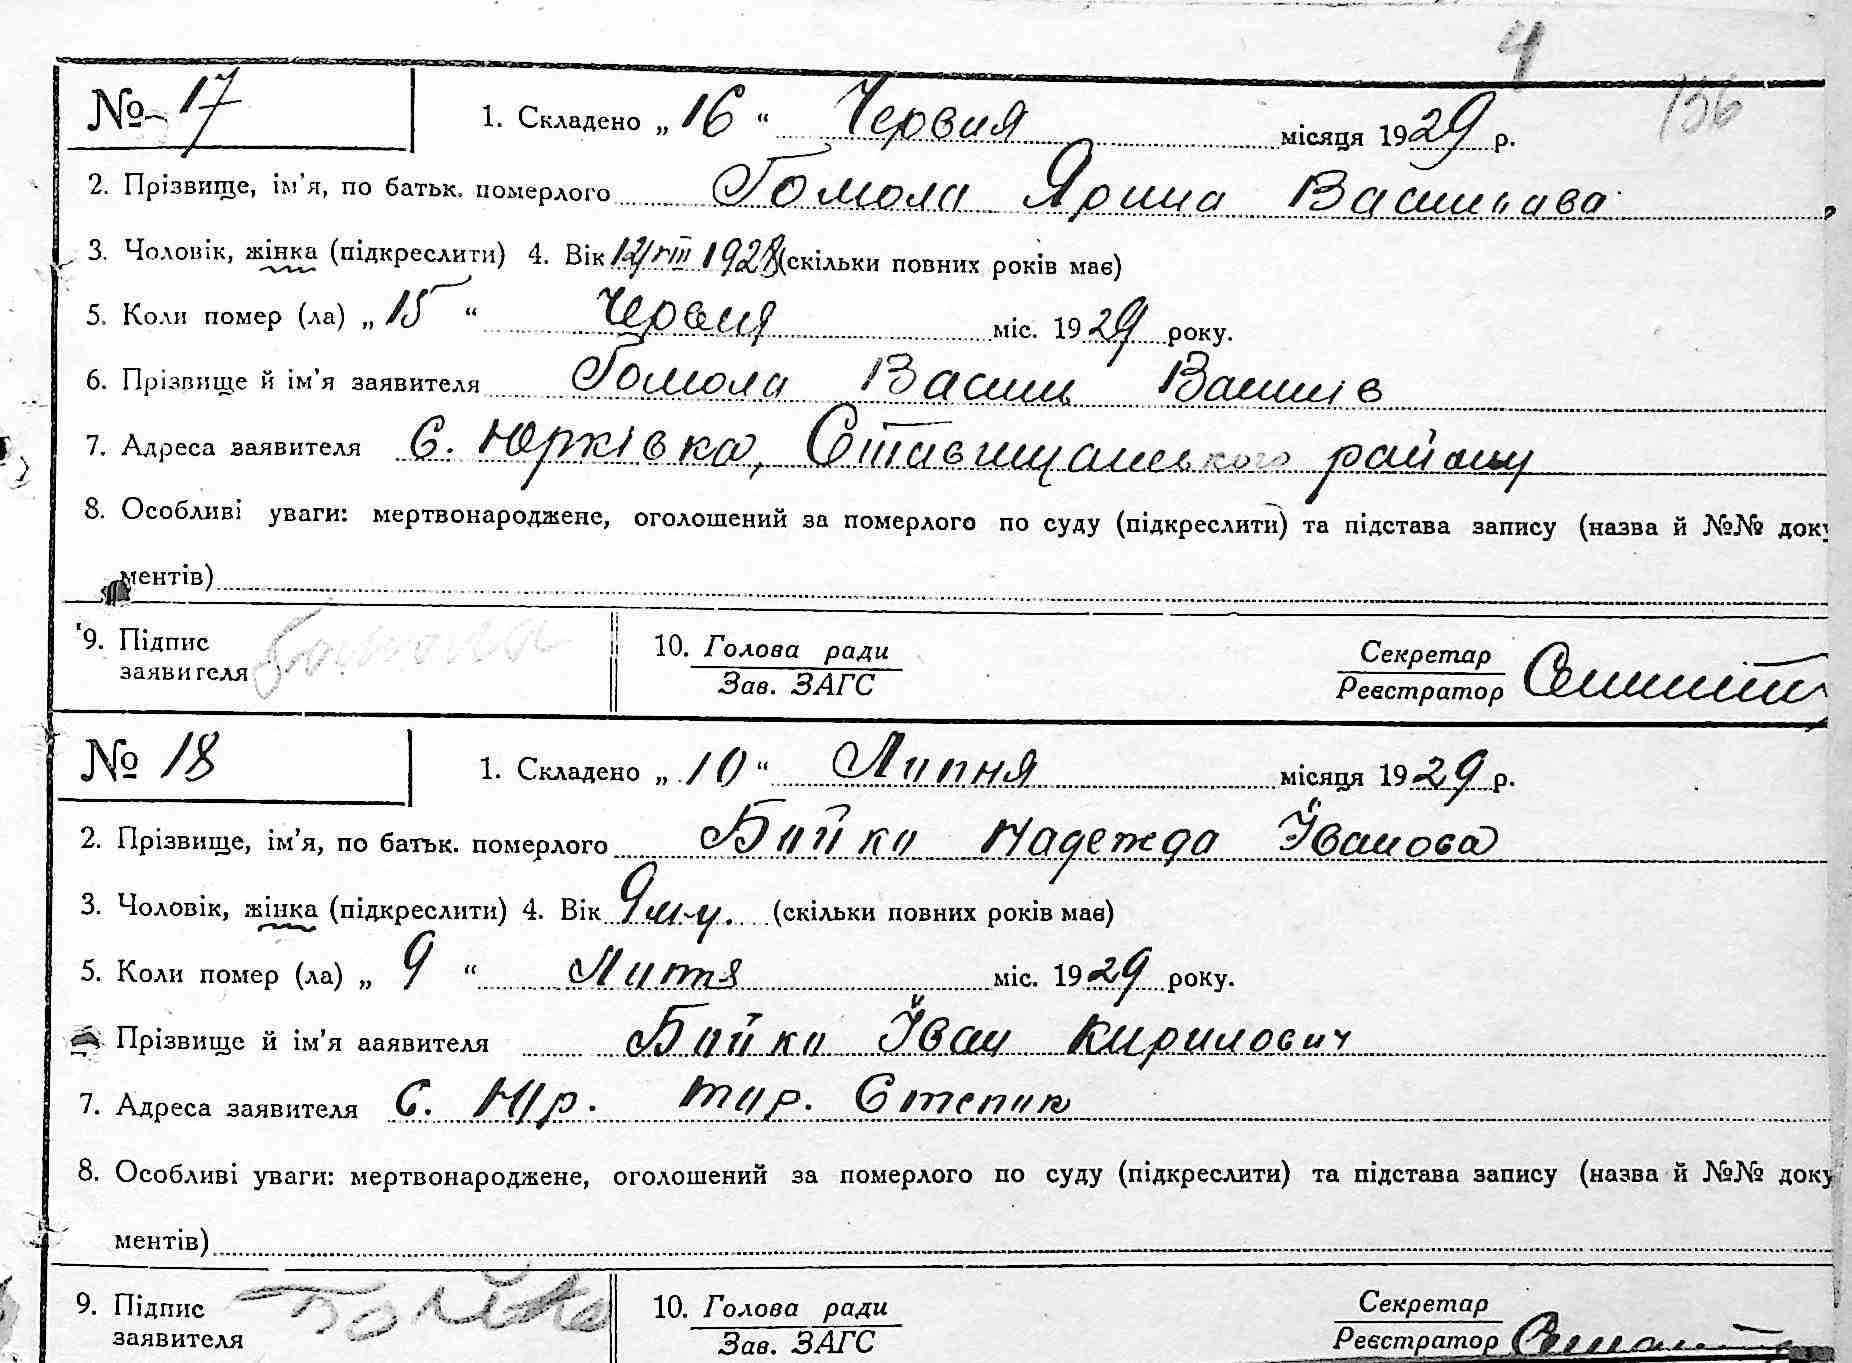 4
136
№ 17 1. Складено „ 16 “ Червня місяця 1929 р.
2. Прізвище, ім’я, по батьк. померлого Гомола Ярина Василава
3. Чоловік, жінка (підкреслити) 4. Вік 12/VIII 1928 (скільки повних років має)
5. Коли помер (ла) „ 15 “ Червня міс. 1929 року.
6. Прізвище й ім’я заявителя Гомола Василь Василів
7. Адреса заявителя с. Юрківка, Ставищанського району
8. Особливі уваги: мертвонароджене, оголошений за померлого по суду (підкреслити) та підстава запису (назва й №№ доку
ментів)
9. Підпис заявителя Гомола 10. Голова ради Секретар
Зав. ЗАГС Реєстратор
№ 18 1. Складено „ 10 “ Липня місяця 1929 р.
2. Прізвище, ім’я, по батьк. померлого Бойко Надежда Іванова
3. Чоловік, жінка (підкреслити) 4. Вік 9 м-ц. (скільки повних років має)
5. Коли помер (ла) „ 9 “ Липня міс. 1929 року.
Прізвище й ім’я заявителя Бойко Іван Кирилович
7. Адреса заявителя с. Юр.
8. Особливі уваги: мертвонароджене, оголошений за померлого по суду (підкреслити) та підстава запису (назва й №№ доку
ментів)
9. Підпис заявителя Бойко 10. Голова ради Секретар
Зав. ЗАГС Реєстратор